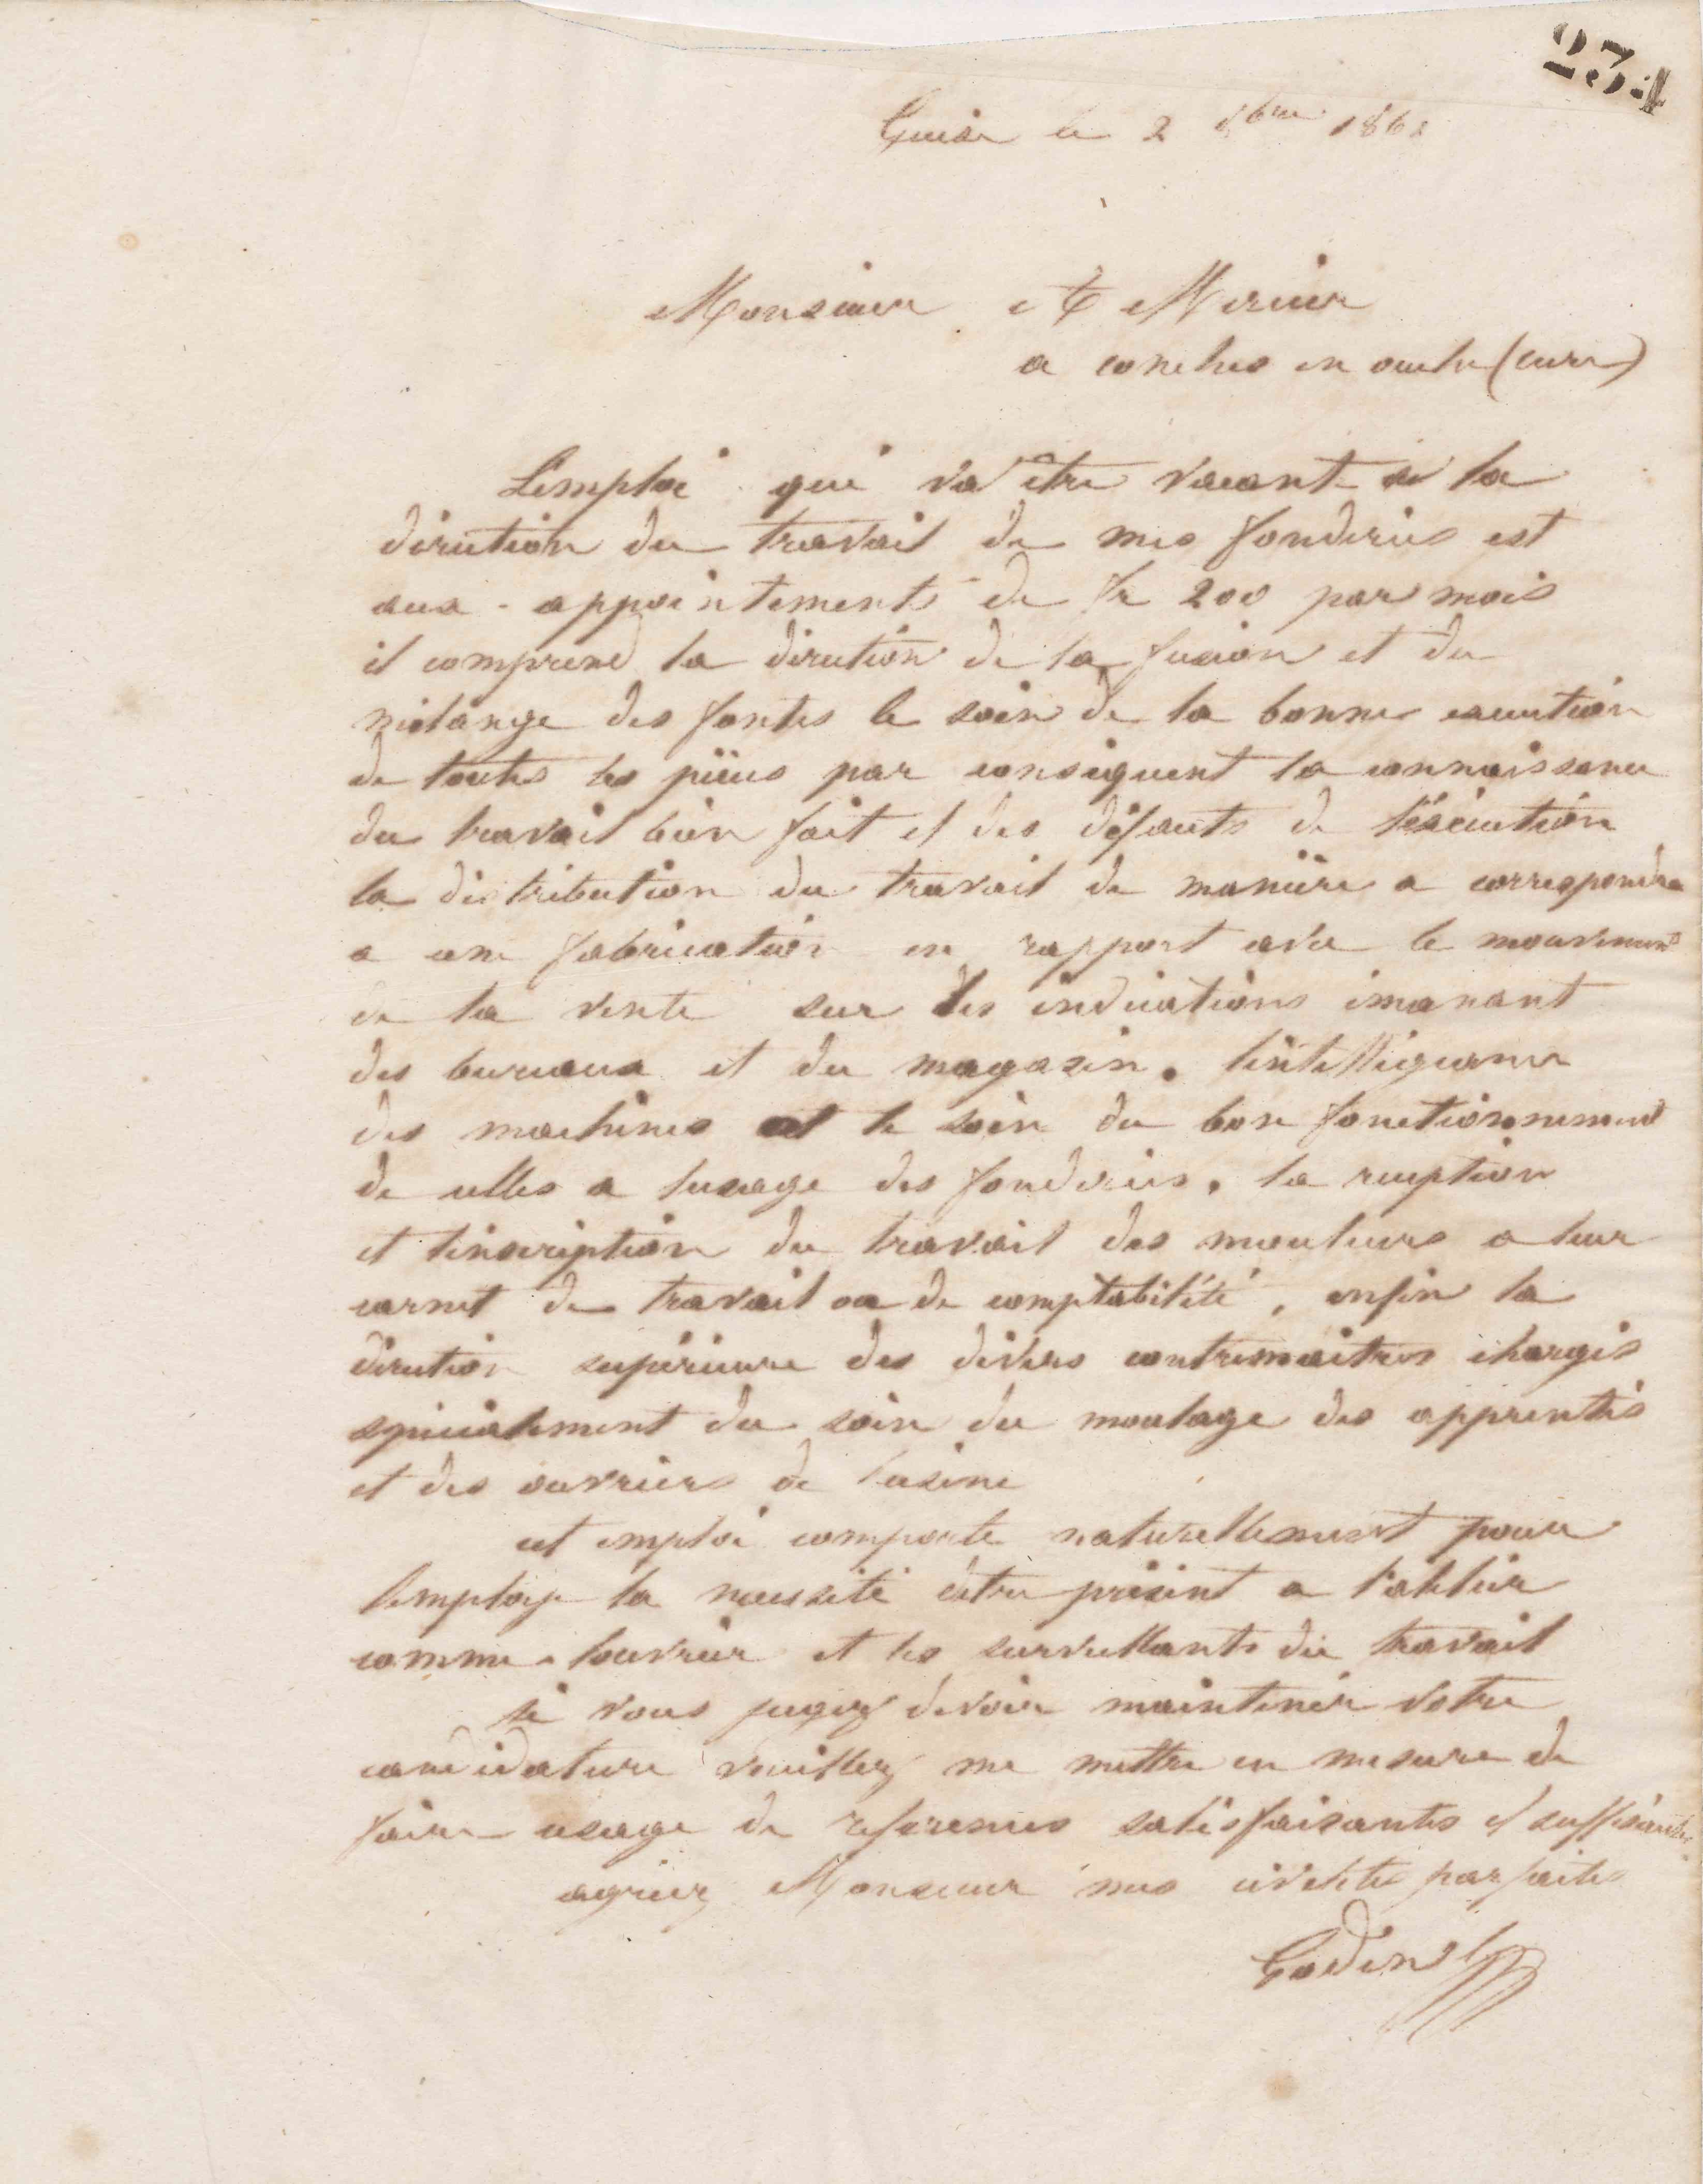 234
Guise le 2 8bre 1862
Monsieur A Mercier
a conches en ouche (eure)
L'emploi qui va être vacant à la
direction du travail de mes fonderies est
aux appointements de fr 200 par mois
il comprend la direction de la fusion et du
mélange des fontes le soin de la bonne execution
de toutes les pièces par conséquent la connaissance
du travail bien fait et des défauts de l'éxécution
la distribution du travail de manière a correspondre
a une fabrication en rapport avec le mouvement
de la vente sur des indications émanant
des bureaux et du magasin. l'intelligence
des machines et le soin du bon fonctionnement
de celles a lusage des fonderies. la reception
et l'inscription du travail des mouleurs a leur
carnet de travail ou de comptabilité, enfin la
direction supérieure des divers contremaitres chargés
spécialement du soin du moulage des apprentis
et des ouvriers de lusine
cet emploi comporte naturellement pour
lemployé la necessité detre présent a l'atelier
comme louvrier et les surveillants du travail
si vous jugez devoir maintenir votre
candidature veuillez me mettre en mesure de
faire usage de references satisfaisantes et suffisantes
agréez Monsieur mes civilités parfaites
Godin